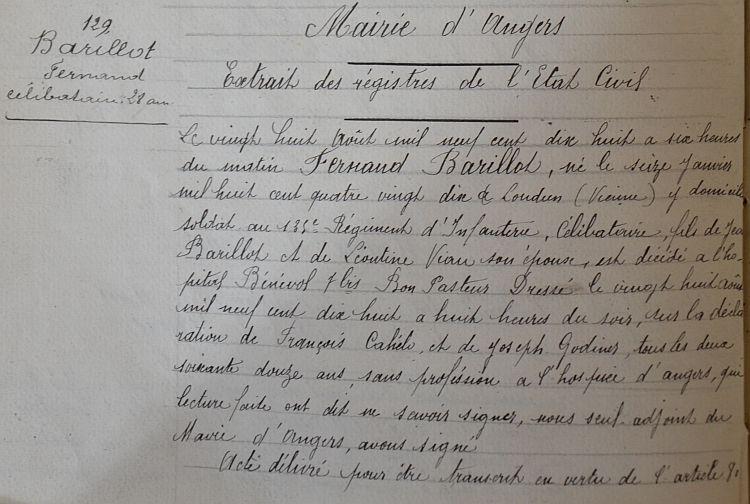 129
Barillot
Fernand
célibataire 28 ans
Mairie d'Angers
Extrait des régistres de l'Etat Civil
Le vingt huit Août mil neuf cent dix huit a six heures
du matin Fernand Barillot, né le seize Janvier
mil huit cent quatre vingt dix à Loudun (Vienne) y domicilié
soldat au 135e Régiment d'Infanterie, Célibataire, fils de Jean
Barillot et de Léontine Viau son épouse, est décédé a l'ho-
pital Bénévol 7 bis Bon Pasteur Dressé le vingt huit Août
mil neuf cent dix huit a huit heures du soir, sur la décla
ration de François Cahélo, et de Joseph Godiner, tous les deux
soixante douze ans, sans profession a l'hospice d'angers, qui
lecture faite ont dit ne savoir signer, nous seul adjoint du
Maire d'Angers, avons signé
Acte délivré pour être transcrit en vertu de l'article 80